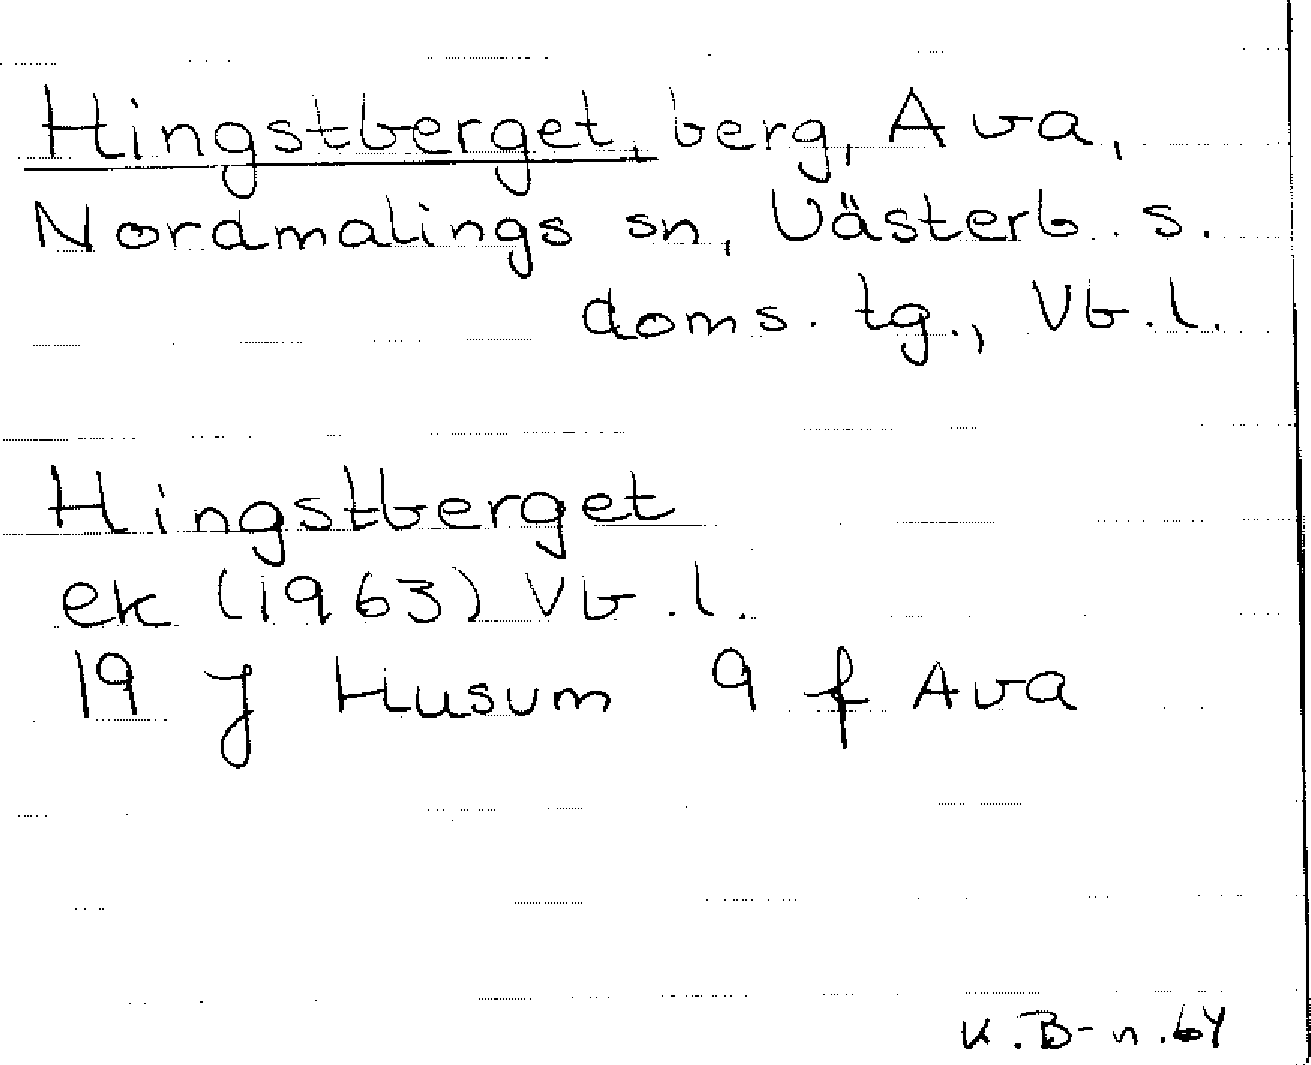 Hingstberget, berg, Ava,
Nordmalings sn, Västerb. s.
doms. tg., Vb. l.
Hingstberget
ek (1963) Vb. l.
19 J Husum 9 f Ava
K. B-n. 64